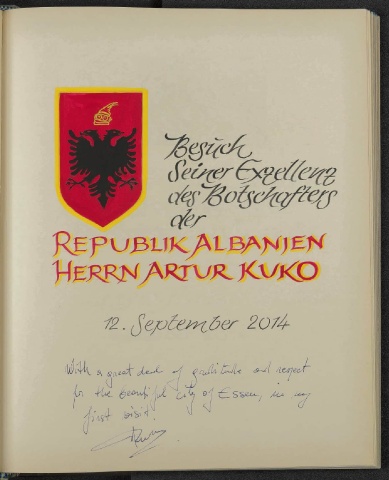 Besuch
Seiner Exzellenz
des Botschafters
der
REPUBLIK ALBANIEN
HERRN ARTUR KUKO
12. September 2014
With a great deal of gratitude and respect
for the beautiful city of Essen, in my
first visit!